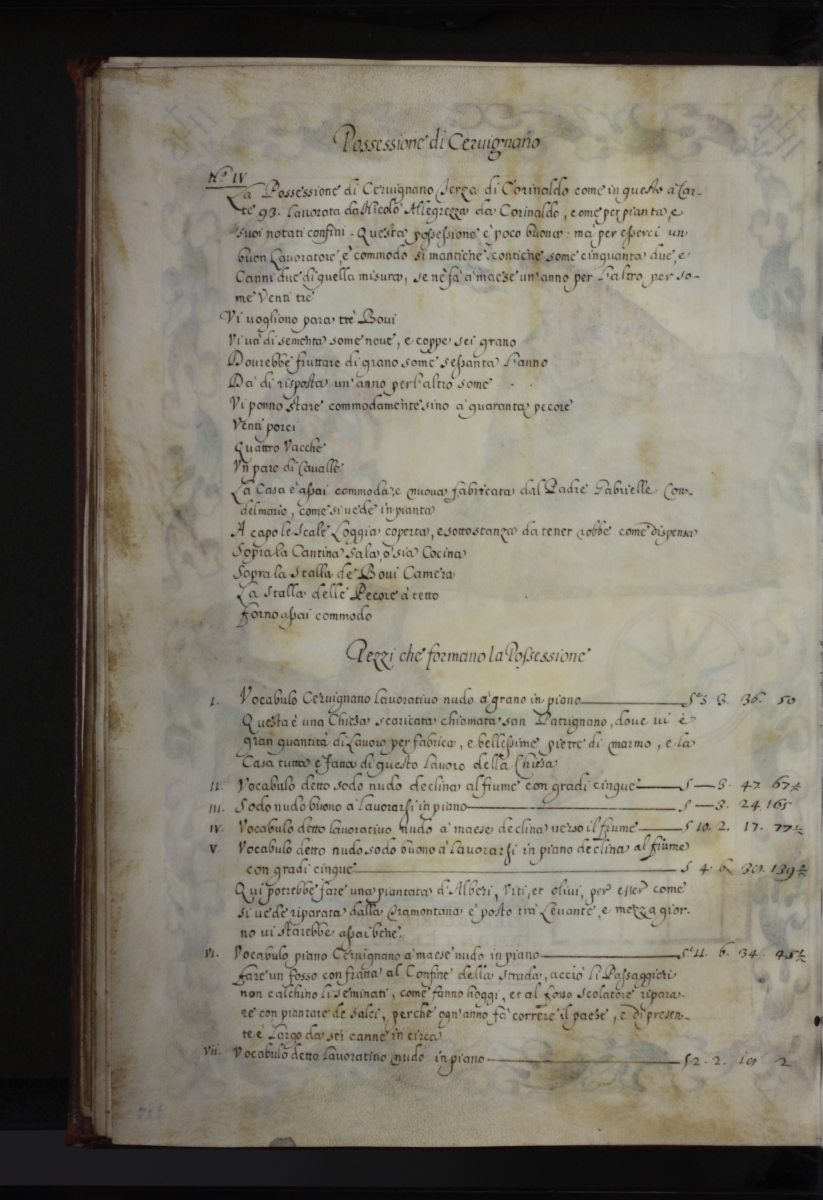 Possessione di Ceruignano
N.º IV
La Possessione di Ceruignano Serza di Corinaldo come in questo à Car-
te 93. lauorata da Nicolò Allegrezza da Corinaldo, e come per pianta, e
suoi notati confini. Questa possessione è poco buona: mà per esserci un
buon Lauoratore, è commodo si mantiche. contiche some cinquanta due, e
Canni due di quella misura, se ne fà à maese un'anno per l'altro per so-
me Venti trè
Vi uogliono para trè Boui
Vi uà di sementa some noue, e coppe sei grano
Dourebbe fruttare di grano some sessanta l'anno
Dà di risposta un'anno per l'altro some
Vi ponno stare commodamente sino à quaranta pecore
Venti porci
Quattro Vacche
Vn paro di Caualle
La Casa è assai commoda, e nuoua fabricata dal Padre Gabrielle Con-
delmario, come si uede in pianta
A capo le Scale Loggia coperta, e sotto stanza da tener robbe come dispensa
Sopra la Cantina Sala, ò sia Cocina
Sopra la Stalla de Boui Camera
La Stalla delle Pecore à tetto
Forno assai commodo
Pezzi che formano la Possessione
I. Vocabulo Ceruignano lauoratiuo nudo à grano in piano S.e 5 3. 36. 50
Questa è una Chiesa scaricata chiamata san Patrignano, doue ui è
gran quantità di Lauoro per fabrica, e bellessime pietre di marmo, e la
Casa tutta è fatta di questo lauoro della Chiesa
II. Vocabulo detto sodo nudo declina al fiume con gradi cinque S — 3. 47. 67½
III. Sodo nudo buono à lauorarsi in piano S — 3. 24. 165
IV. Vocabulo detto lauoratiuo nudo à maese declina uerso il fiume S 10. 2. 17. 77½
V Vocabulo detto nudo sodo buono à lauorarsi in piano declina al fiume
con gradi cinque S 4. 6. 30. 139½
Qui potrebbe fare una piantata d'Alberi, Viti, et oliui, per esser come
si uede riparata dalla Tramontana è posto trà Leuante, e mezza gior-
no ui starebbe assai bene.
VI. Vocabulo piano Ceruignano à maese nudo in piano S.e 11. 6. 34. 95½
Fare un fosso con fratta al Confine della Strada, acciò li Passaggieri
non calchino li seminati, come fanno hoggi, et al fosso Scolatore ripara-
re con piantare de salci, perche ogn'anno fà correre il paese, e di presen-
te è largo da sei canne in circa
VII. Vocabulo detto lauoratiuo nudo in piano S 2. 2. 19 2